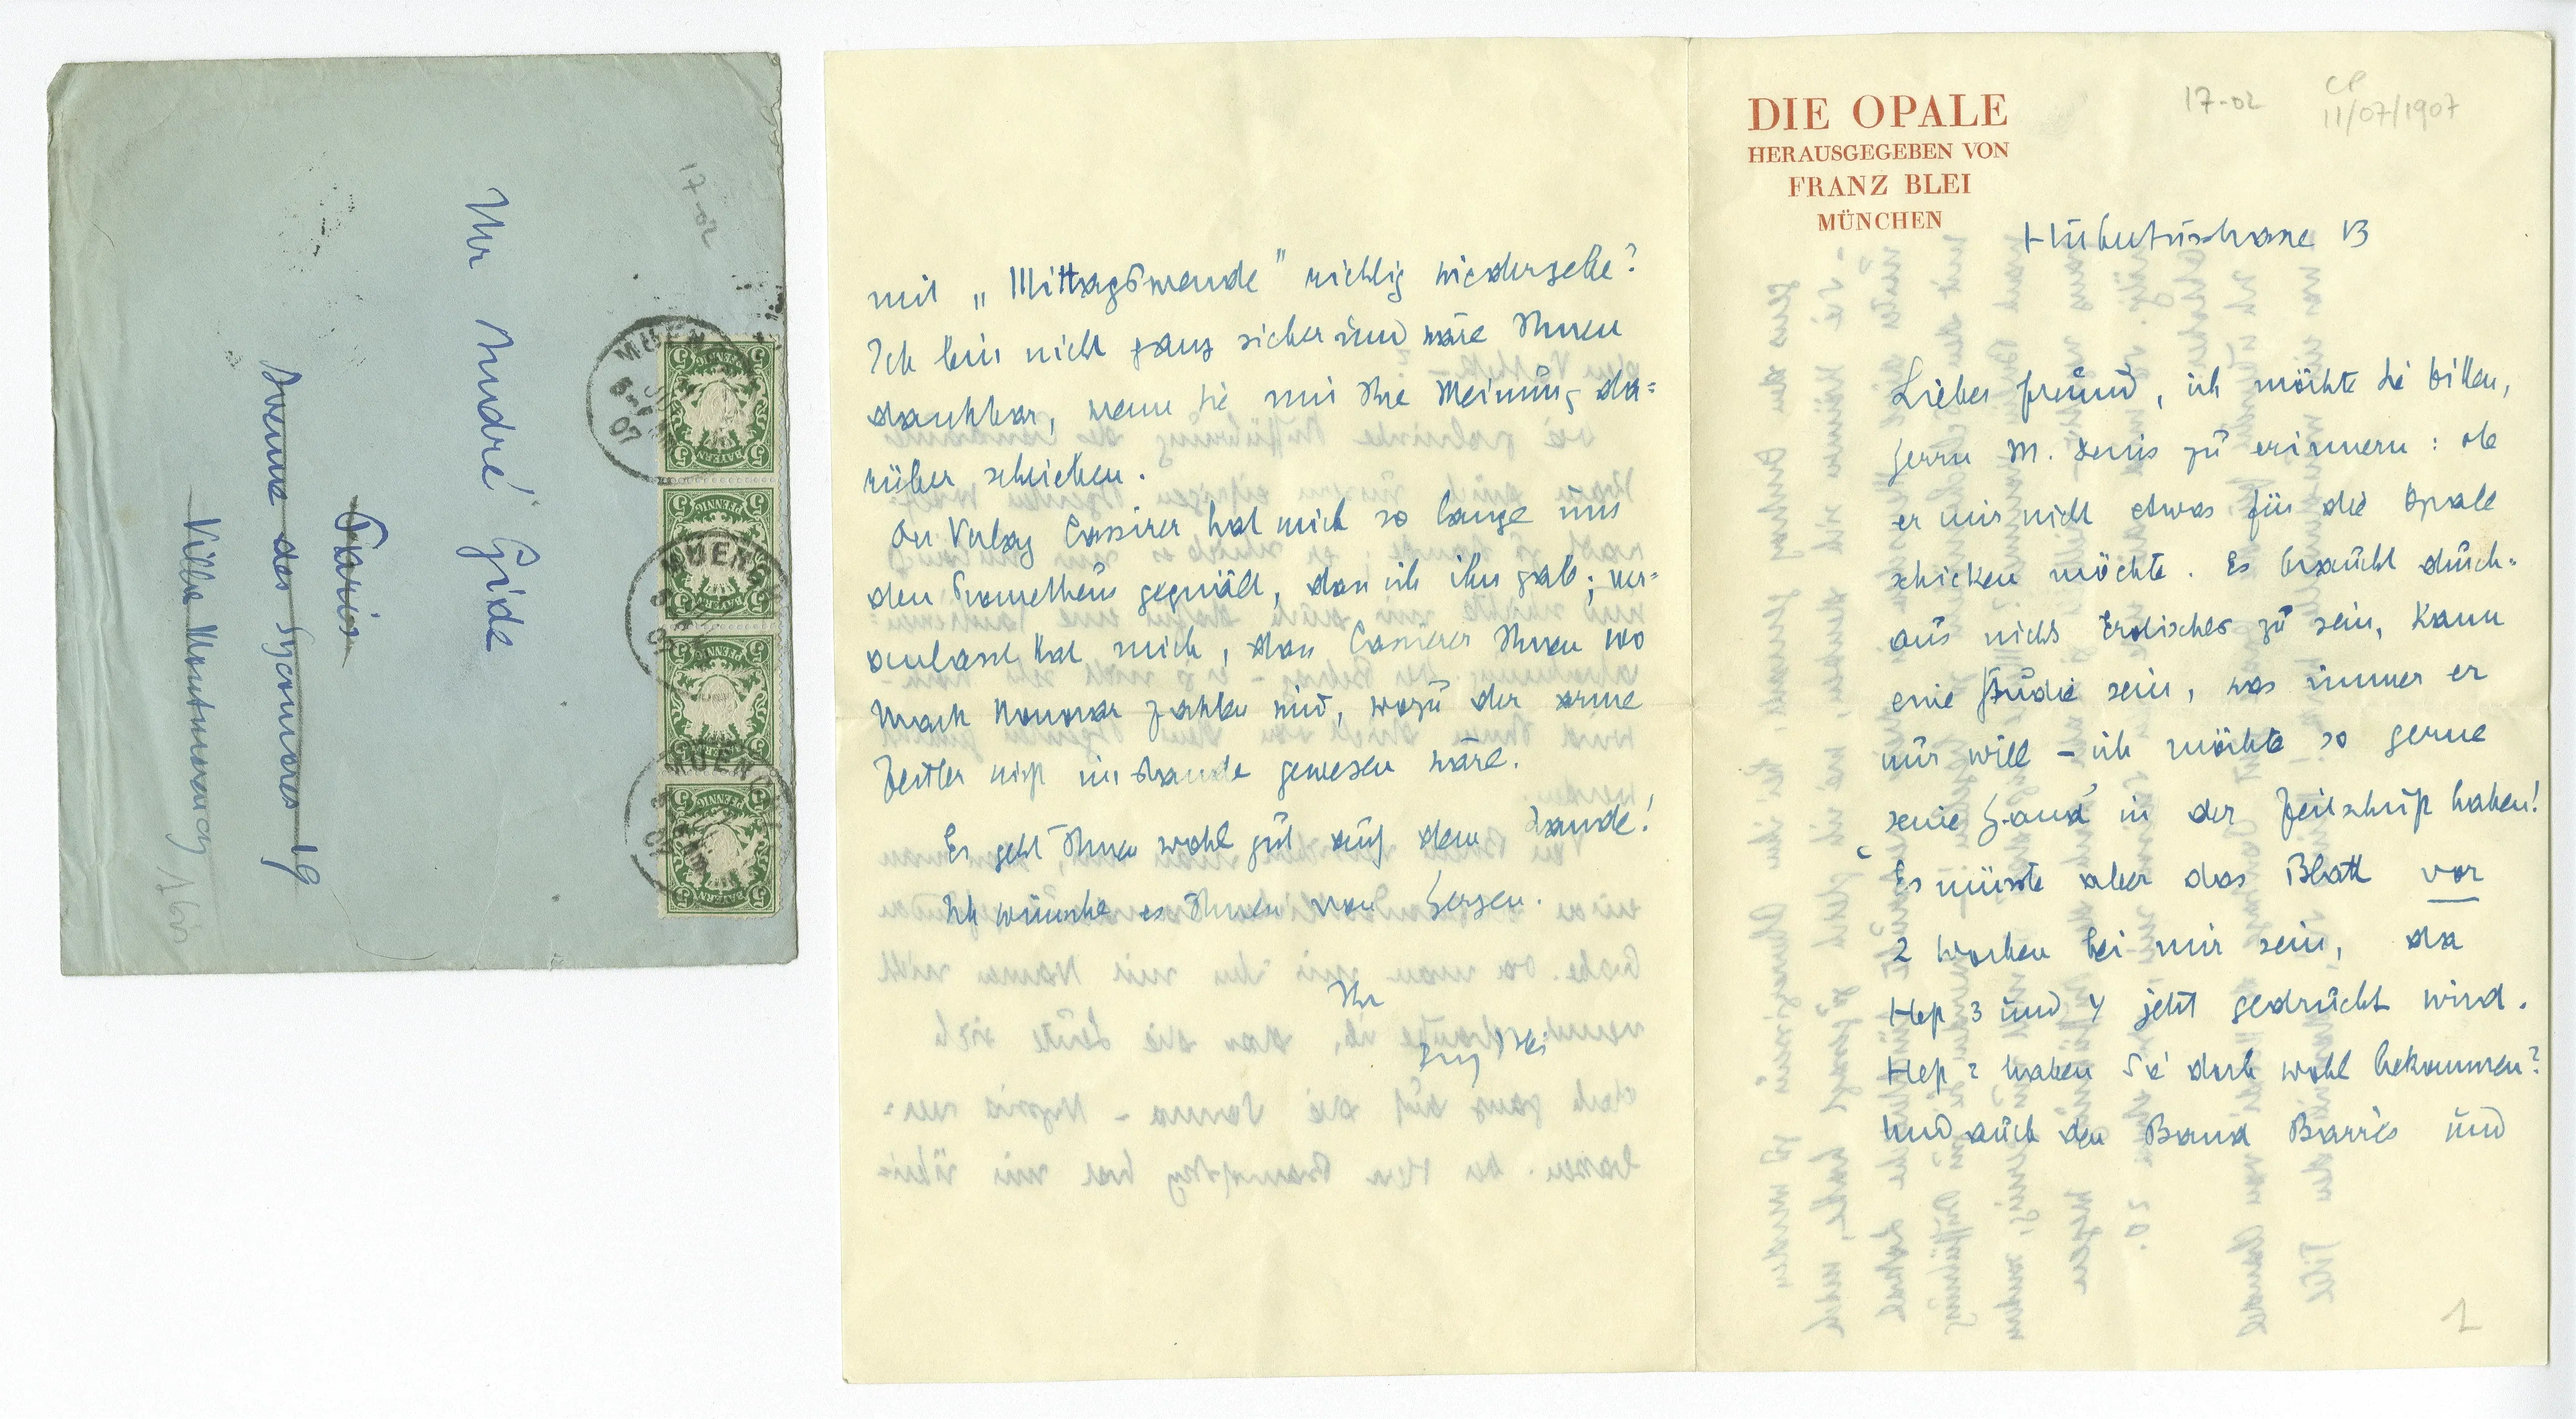 17-02
Mr André Gide
Paris
Avenue des Sycomores 19
Villa Montmorency
16bis
BAYERN
5 PFENNIG 5
BAYERN
5 PFENNIG 5
BAYERN
5 PFENNIG 5
BAYERN
5 PFENNIG 5
MUEN
07
MUEN
MUEN
DIE OPALE
HERAUSGEGEBEN VON
FRANZ BLEI
MÜNCHEN
17-02
CP
11/07/1907
Hubertusstrasse 13
Lieber Freund, ich möchte Sie bitten,
Herrn M. Denis zu erinnern: ob
er mir nicht etwas für die Opale
schicken möchte. Es braucht durch=
aus nichts Erotisches zu sein, kann
eine Studie sein, was immer er
nur will – ich möchte so gerne
seine Hand in der Zeitschrift haben!
Es müsste aber das Blatt vor
2 Wochen bei mir sein, da
Heft 3 und 4 jetzt gedruckt wird.
Heft 2 haben Sie doch wohl bekommen?
Und auch den Band Barrès und
1
mit „Mittagswende" richtig wiedergebe?
Ich bin nicht ganz sicher und wäre Ihnen
dankbar, wenn Sie mir Ihre Meinung da=
rüber schrieben.
Der Verlag Cassirer hat mich so lange um
den Prometheus gequält, dass ich ihn gab; ver=
anlasst hat mich, dass Cassirer Ihnen 100
Mark Honorar zahlen wird, wozu der arme
Zeitler nicht im Stande gewesen wäre.
Es geht Ihnen wohl gut auf dem Lande!
Ich wünsche es Ihnen von Herzen.
Ihr
Franz Blei